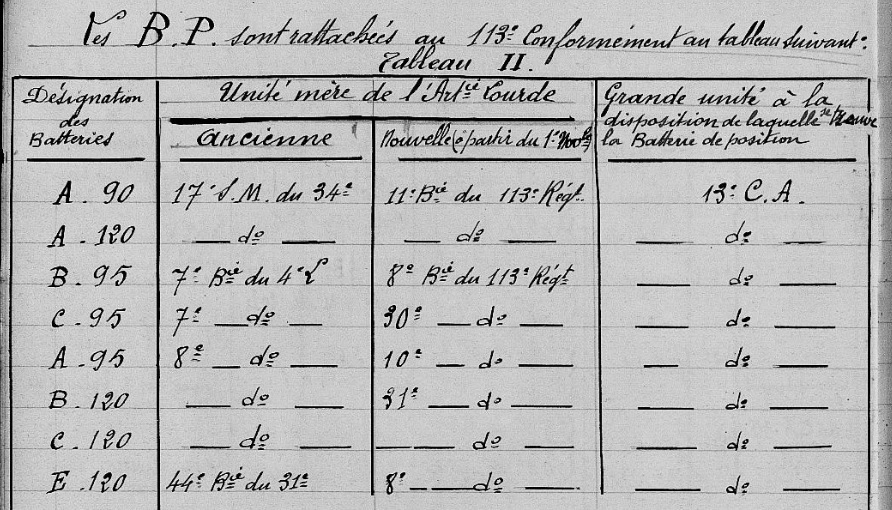 Les B.P. sont rattachées au 113e Conformément au tableau suivant.
Tableau II.
Désignation des Batteries
Unité mère de l'Artie Lourde
Grande unité à la disposition de laquelle se trouve la Batterie de position
ancienne
Nouvelle (à partir du 1er Novbre)
A. 90 17e S.M. du 34e 11e Bie du 113e Régt. 13e C.A.
A. 120 — do — — do — — do —
B. 95 7e Bie du 4e L 8e Bie du 113e Régt — do —
C. 95 7e — do — 30e — do — — do —
A. 95 8e — do — 10e — do — — do —
B. 120 — do — 31e — do — — do —
C. 120 — do — — do — — do —
E. 120 44e Bie du 31e 8e — do — — do —